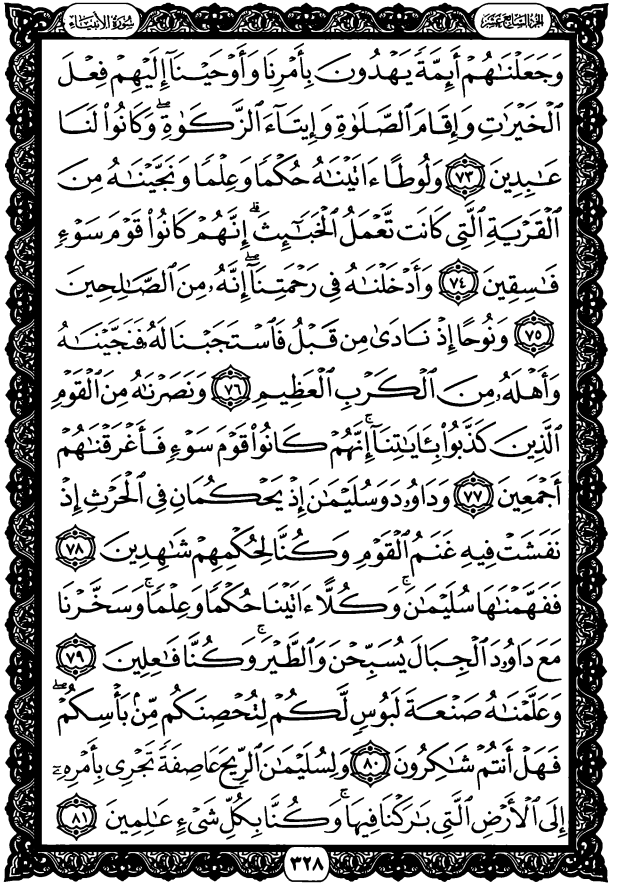 سُورَةُ الأَنبيَاء
الجزء السابع عشر
وَجَعَلْنَٰهُمْ أَئِمَّةً يَهْدُونَ بِأَمْرِنَا وَأَوْحَيْنَآ إِلَيْهِمْ فِعْلَ
ٱلْخَيْرَٰتِ وَإِقَامَ ٱلصَّلَوٰةِ وَإِيتَآءَ ٱلزَّكَوٰةِ ۖ وَكَانُوا۟ لَنَا
عَٰبِدِينَ ٧٣ وَلُوطًا ءَاتَيْنَٰهُ حُكْمًا وَعِلْمًا وَنَجَّيْنَٰهُ مِنَ
ٱلْقَرْيَةِ ٱلَّتِى كَانَت تَّعْمَلُ ٱلْخَبَٰٓئِثَ ۗ إِنَّهُمْ كَانُوا۟ قَوْمَ سَوْءٍ
فَٰسِقِينَ ٧٤ وَأَدْخَلْنَٰهُ فِى رَحْمَتِنَآ ۖ إِنَّهُۥ مِنَ ٱلصَّٰلِحِينَ
٧٥ وَنُوحًا إِذْ نَادَىٰ مِن قَبْلُ فَٱسْتَجَبْنَا لَهُۥ فَنَجَّيْنَٰهُ
وَأَهْلَهُۥ مِنَ ٱلْكَرْبِ ٱلْعَظِيمِ ٧٦ وَنَصَرْنَٰهُ مِنَ ٱلْقَوْمِ
ٱلَّذِينَ كَذَّبُوا۟ بِـَٔايَٰتِنَآ ۚ إِنَّهُمْ كَانُوا۟ قَوْمَ سَوْءٍ فَأَغْرَقْنَٰهُمْ
أَجْمَعِينَ ٧٧ وَدَاوُۥدَ وَسُلَيْمَٰنَ إِذْ يَحْكُمَانِ فِى ٱلْحَرْثِ إِذْ
نَفَشَتْ فِيهِ غَنَمُ ٱلْقَوْمِ وَكُنَّا لِحُكْمِهِمْ شَٰهِدِينَ ٧٨
فَفَهَّمْنَٰهَا سُلَيْمَٰنَ ۚ وَكُلًّا ءَاتَيْنَا حُكْمًا وَعِلْمًا ۚ وَسَخَّرْنَا
مَعَ دَاوُۥدَ ٱلْجِبَالَ يُسَبِّحْنَ وَٱلطَّيْرَ ۚ وَكُنَّا فَٰعِلِينَ ٧٩
وَعَلَّمْنَٰهُ صَنْعَةَ لَبُوسٍ لَّكُمْ لِتُحْصِنَكُم مِّنۢ بَأْسِكُمْ ۖ
فَهَلْ أَنتُمْ شَٰكِرُونَ ٨٠ وَلِسُلَيْمَٰنَ ٱلرِّيحَ عَاصِفَةً تَجْرِى بِأَمْرِهِۦٓ
إِلَى ٱلْأَرْضِ ٱلَّتِى بَٰرَكْنَا فِيهَا ۚ وَكُنَّا بِكُلِّ شَىْءٍ عَٰلِمِينَ ٨١
٣٢٨